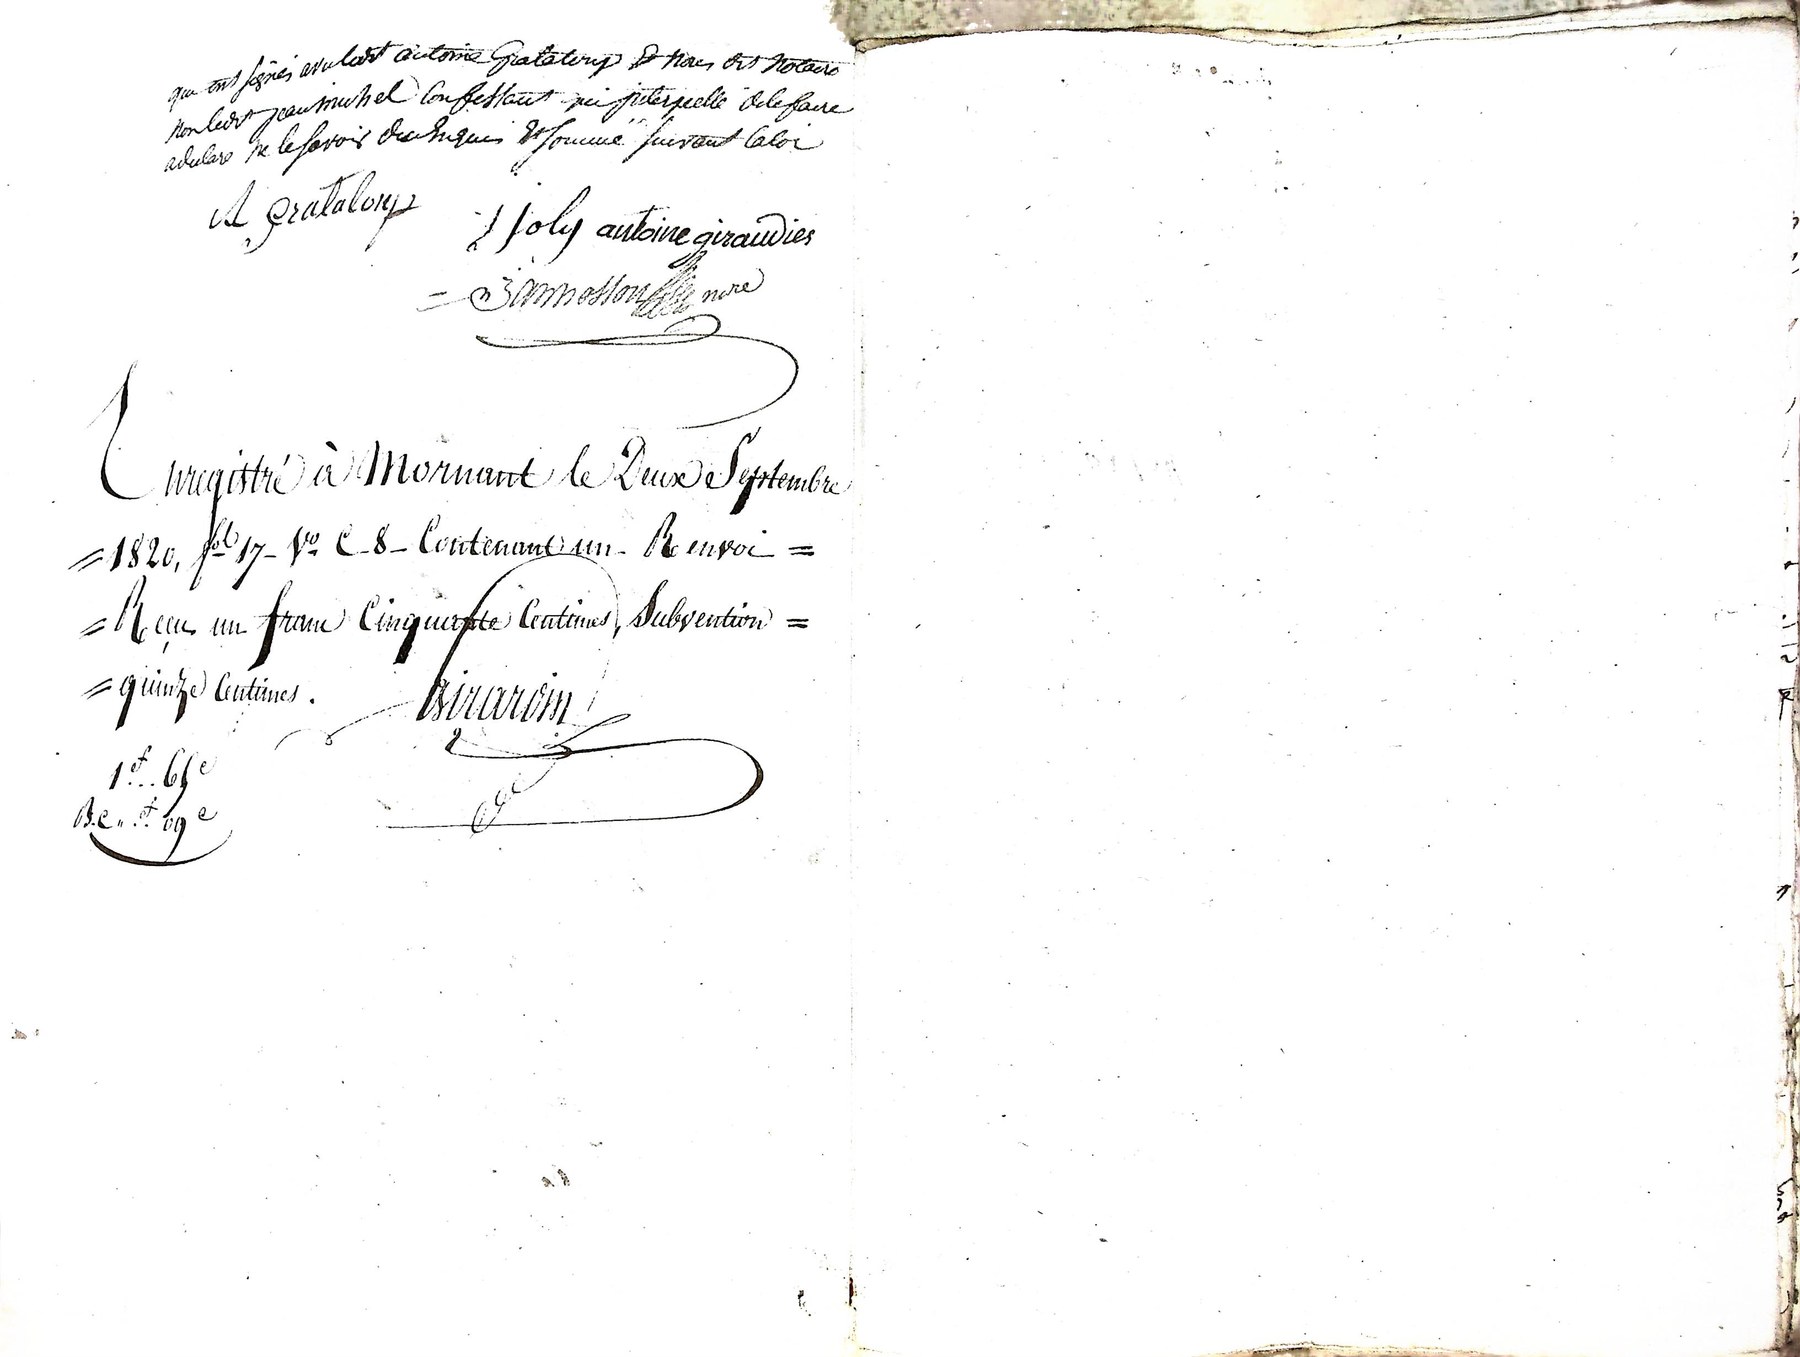 qui ont signés avec ledit antoine Grataloup & nous dit Notaire
non ledit jean michel Confessant qui interpellé de le faire
a déclaré ne le savoir de ce Enquis & sommé suivant la loi
A Grataloup
J Joly antoine giraudies
nore
Enregistré à Mornant le Deux Septembre
= 1820, fol 17 - Vo C - 8 - Contenant un - Renvoi =
= Reçu un franc Cinquante Centimes, Subvention =
= quinze Centimes. Girardin
1f .. 65c